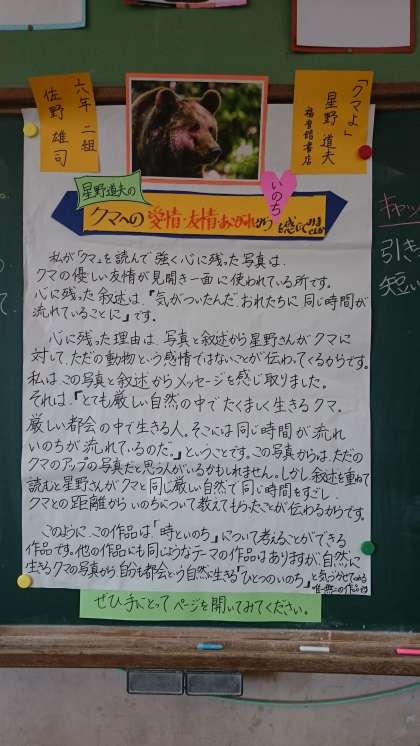 「クマよ」
星野 道夫
福音館書店
六年 二組
佐野 雄司
星野道夫の
いのち
クマへの 愛情・友情・あこがれから
を感じてみませんか
私が『クマよ』を読んで強く心に残った写真は、
クマの優しい友情が見開き一面に使われている所です。
心に残った叙述は、『気がついたんだ おれたちに 同じ時間が
流れていることに』です。
心に残った理由は、写真と叙述から星野さんがクマに
対して、ただの動物という感情ではないことが伝わってくるからです。
私は、この写真と叙述からメッセージを感じ取りました。
それは、『とても厳しい自然の中でたくましく生きるクマ。
厳しい都会の中で生きる人。そこには同じ時間が流れ
いのちが流れているのだ。』ということです。この写真からは、ただの
クマのアップの写真だと思う人がいるかもしれません。しかし 叙述を重ねて
読むと星野さんがクマと同じ厳しい自然で同じ時間をすごし
クマとの距離からいのちについて教えてもらったことが伝わるからです。
このように、この作品は、「時といのち」について考えることができる
作品です。他の作品にも同じようなテーマの作品はありますが、自然に
生きるクマの写真から自分も都会という自然に生きる「ひとつのいのち」
と気づかせてくれる
唯一無二の作品です
ぜひ手にとってページを開いてみてください。
引き
短い